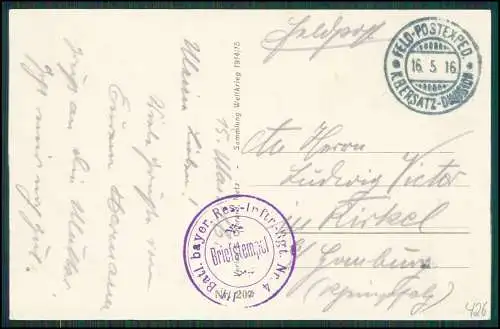 Feldpost
FELD-POSTEXPED.
16. 5. 16
K.B. ERSATZ-DIVISION
An Herrn
Ludwig Victor
in Kirkel
b/ Homburg
(Rheinpfalz)
Sammlung Weltkrieg 1914/15
Batl. bayer. Res.-Inftr.-Rgt. Nr. 4
Briefstempel
15. Mai
Meine Lieben!
Viele Grüße von
Eurem Hermann
Gruß an die Mutter.
Geht mir noch gut.
426